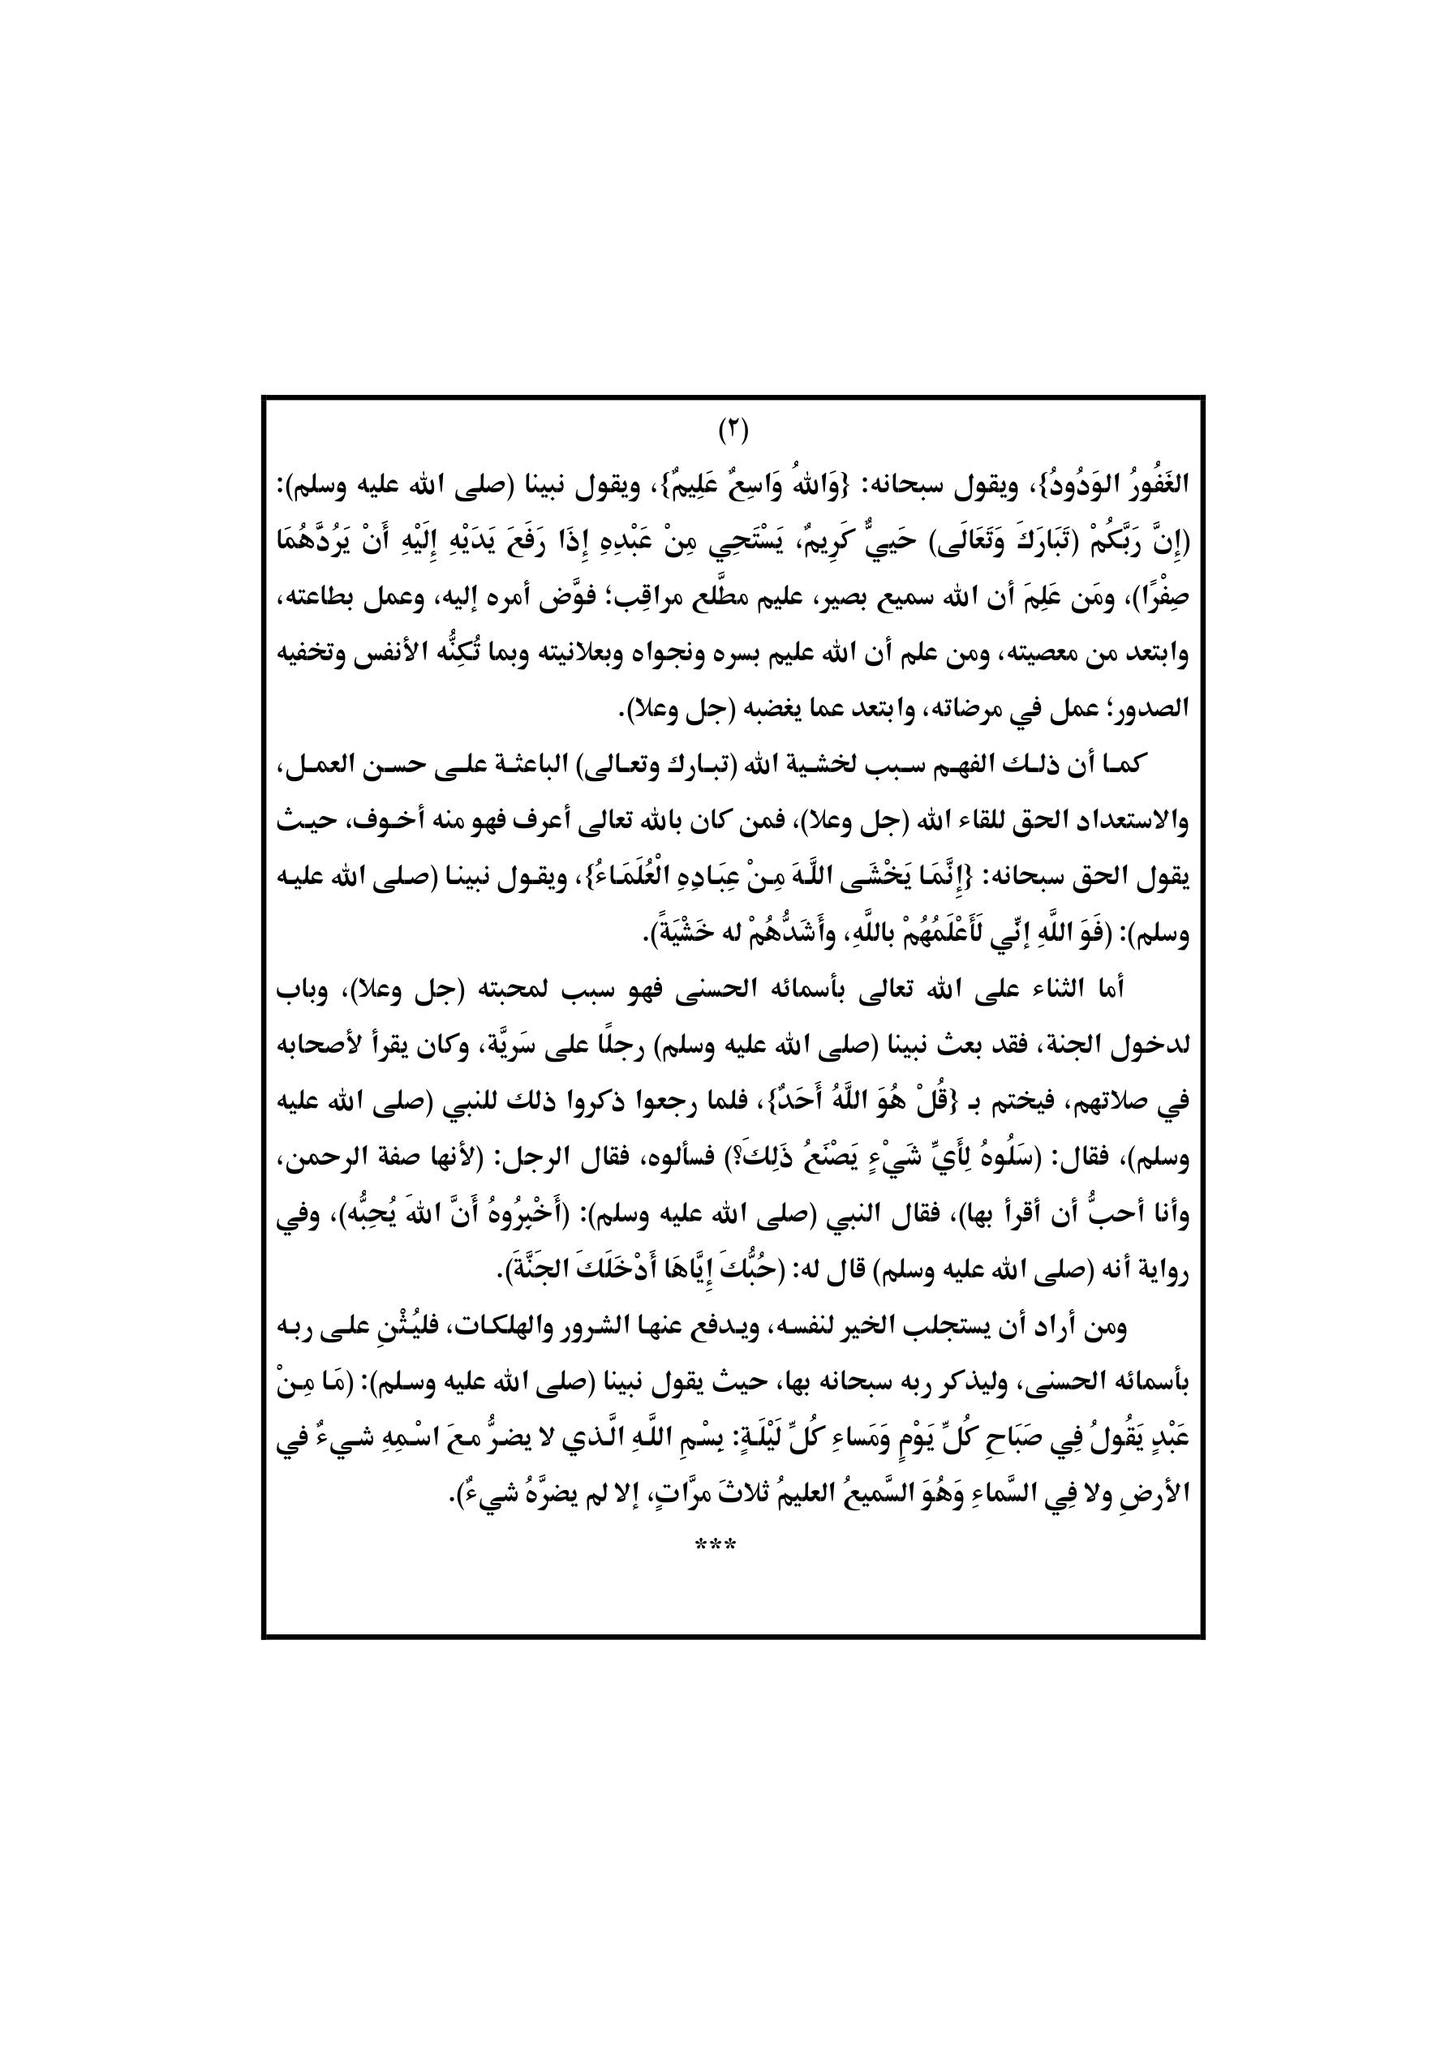 (٢)
الغَفُورُ الوَدُودُ}، ويقول سبحانه: {وَاللهُ وَاسِعٌ عَلِيمٌ}، ويقول نبينا (صلى الله عليه وسلم):
(إِنَّ رَبَّكُمْ (تَبَارَكَ وَتَعَالَى) حَييٌّ كَرِيمٌ، يَسْتَحِي مِنْ عَبْدِهِ إِذَا رَفَعَ يَدَيْهِ إِلَيْهِ أَنْ يَرُدَّهُمَا
صِفْرًا)، ومَن عَلِمَ أن الله سميع بصير، عليم مطَّلع مراقِب؛ فوَّض أمره إليه، وعمل بطاعته،
وابتعد من معصيته، ومن علم أن الله عليم بسره ونجواه وبعلانيته وبما تُكِنُّه الأنفس وتخفيه
الصدور؛ عمل في مرضاته، وابتعد عما يغضبه (جل وعلا).
كمـا أن ذلـك الفهـم سـبب لخشـية الله (تبـارك وتعـالى) الباعثـة علـى حسـن العمـل،
والاستعداد الحق للقاء الله (جل وعلا)، فمن كان بالله تعالى أعرف فهو منه أخـوف، حيـث
يقول الحق سبحانه: {إِنَّمَـا يَخْشَـى اللَّـهَ مِـنْ عِبَـادِهِ الْعُلَمَـاءُ}، ويقـول نبينـا (صـلى الله عليـه
وسلم): (فَوَ اللَّهِ إنِّي لَأَعْلَمُهُمْ باللَّهِ، وأَشَدُّهُمْ له خَشْيَةً).
أما الثناء على الله تعالى بأسمائه الحسنى فهو سبب لمحبته (جل وعلا)، وباب
لدخول الجنة، فقد بعث نبينا (صلى الله عليه وسلم) رجلًا على سَريَّة، وكان يقرأ لأصحابه
في صلاتهم، فيختم بـ {قُلْ هُوَ اللَّهُ أَحَدٌ}، فلما رجعوا ذكروا ذلك للنبي (صلى الله عليه
وسلم)، فقال: (سَلُوهُ لِأَيِّ شَيْءٍ يَصْنَعُ ذَلِكَ؟) فسألوه، فقال الرجل: (لأنها صفة الرحمن،
وأنا أحبُّ أن أقرأ بها)، فقال النبي (صلى الله عليه وسلم): (أَخْبِرُوهُ أَنَّ اللهَ يُحِبُّه)، وفي
رواية أنه (صلى الله عليه وسلم) قال له: (حُبُّكَ إِيَّاهَا أَدْخَلَكَ الجَنَّةَ).
ومن أراد أن يستجلب الخير لنفسـه، ويـدفع عنهـا الشـرور والهلكـات، فليُـثْنِ علـى ربـه
بأسمائه الحسنى، وليذكر ربه سبحانه بها، حيث يقول نبينا (صلى الله عليه وسـلم): (مَـا مِـنْ
عَبْدٍ يَقُولُ فِي صَبَاحِ كُلِّ يَوْمٍ وَمَساءِ كُلِّ لَيْلَـةٍ: بِسْمِ اللَّـهِ الَّـذي لا يضـرُّ مـعَ اسْـمِهِ شـيءٌ في
الأرضِ ولا فِي السَّماءِ وَهُوَ السَّميعُ العليمُ ثلاثَ مرَّاتٍ، إلا لم يضرَّهُ شيءٌ).
***